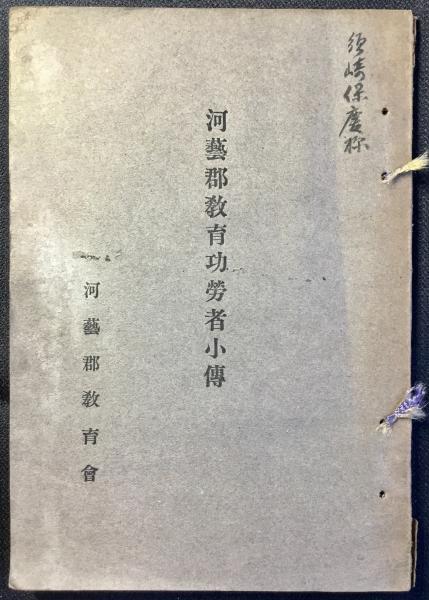 須崎保慶殿
河藝郡敎育功勞者小傳
河藝郡敎育會